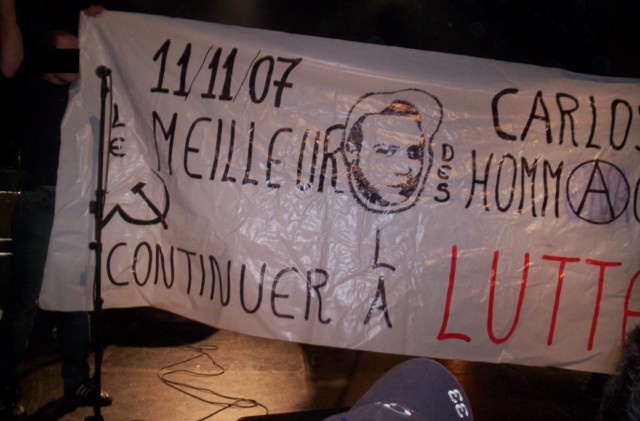 11/11/07 CARLOS
LE MEILLEUR DES HOMMAG
CONTINUER LA LUTT
33